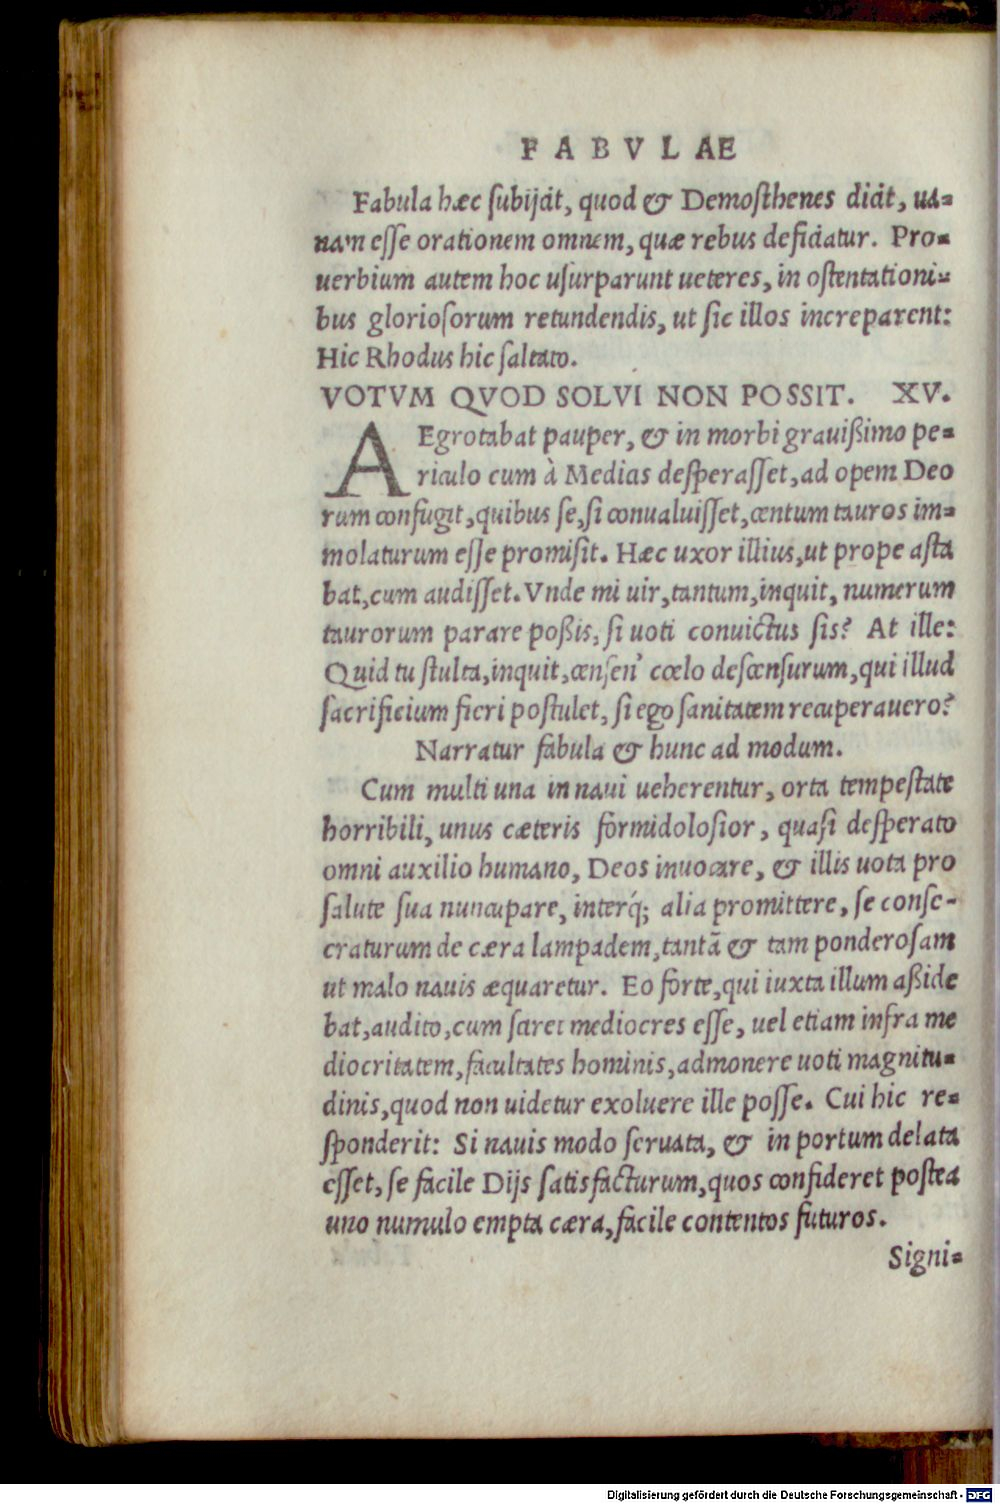 FABVLAE
Fabula hæc subijcit, quod & Demosthenes dicit, ua-
nam esse orationem omnem, quæ rebus deficiatur. Pro-
uerbium autem hoc usurparunt ueteres, in ostentationi-
bus gloriosorum retundendis, ut sic illos increparent:
Hic Rhodus hic saltato.
VOTVM QVOD SOLVI NON POSSIT. XV.
AEgrotabat pauper, & in morbi grauißimo pe-
riculo cum à Medicis desperasset, ad opem Deo
rum confugit, quibus se, si conualuisset, centum tauros im-
molaturum esse promisit. Hæc uxor illius, ut prope asta
bat, cum audisset. Vnde mi uir, tantum, inquit, numerum
taurorum parare poßis, si uoti conuictus sis? At ille:
Quid tu stulta, inquit, censen' cœlo descensurum, qui illud
sacrificium fieri postulet, si ego sanitatem recuperauero?
Narratur fabula & hunc ad modum.
Cum multi una in naui ueherentur, orta tempestate
horribili, unus cæteris formidolosior, quasi desperato
omni auxilio humano, Deos inuocare, & illis uota pro
salute sua nuncupare, interq́; alia promittere, se conse-
craturum de cæra lampadem, tantā & tam ponderosam
ut malo nauis æquaretur. Eo forte, qui iuxta illum aßide
bat, audito, cum sciret mediocres esse, uel etiam infra me
diocritatem, facultates hominis, admonere uoti magnitu-
dinis, quod non uidetur exoluere ille posse. Cui hic re-
sponderit: Si nauis modo seruata, & in portum delata
esset, se facile Dijs satisfacturum, quos confideret postea
uno numulo empta cæra, facile contentos futuros.
Signi-
Digitalisierung gefördert durch die Deutsche Forschungsgemeinschaft - DFG